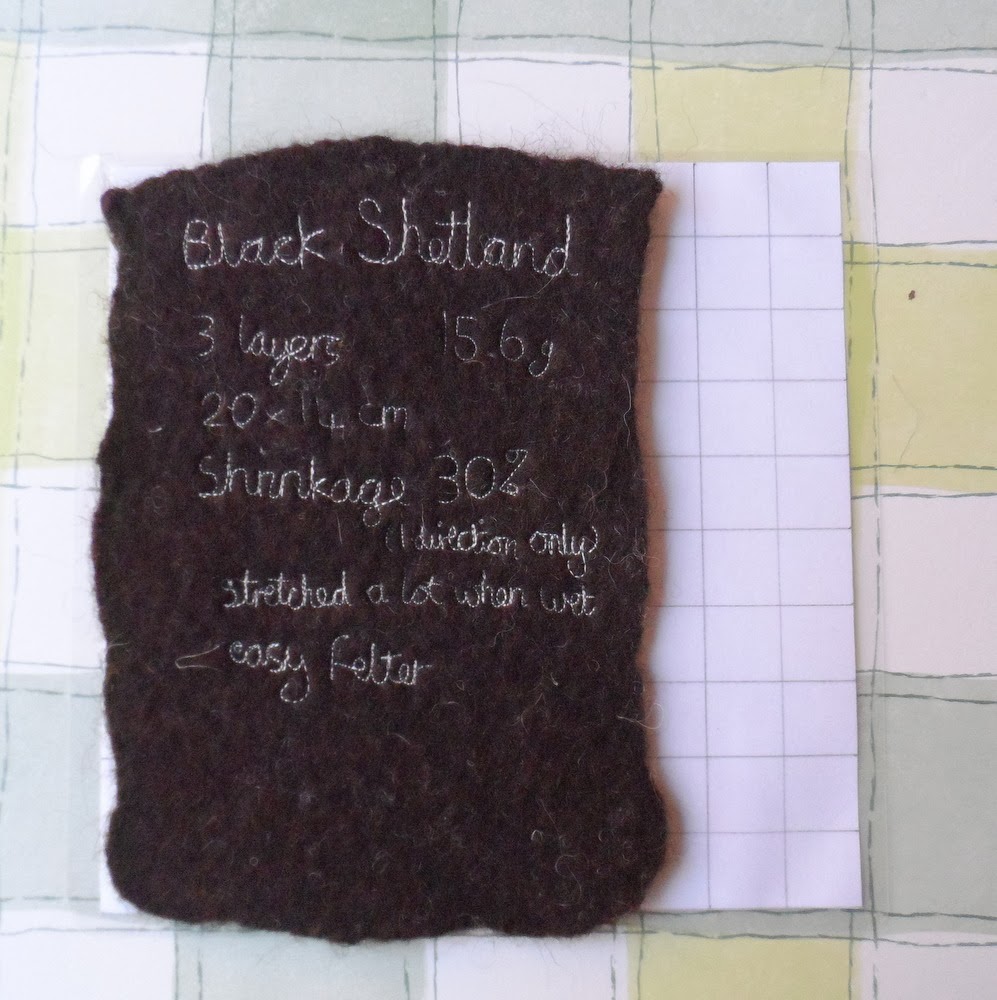 Black Shetland
3 layers 15.6g
20 x 14 cm
Shrinkage 30%
(1 direction only)
stretched a lot when wet
easy felter